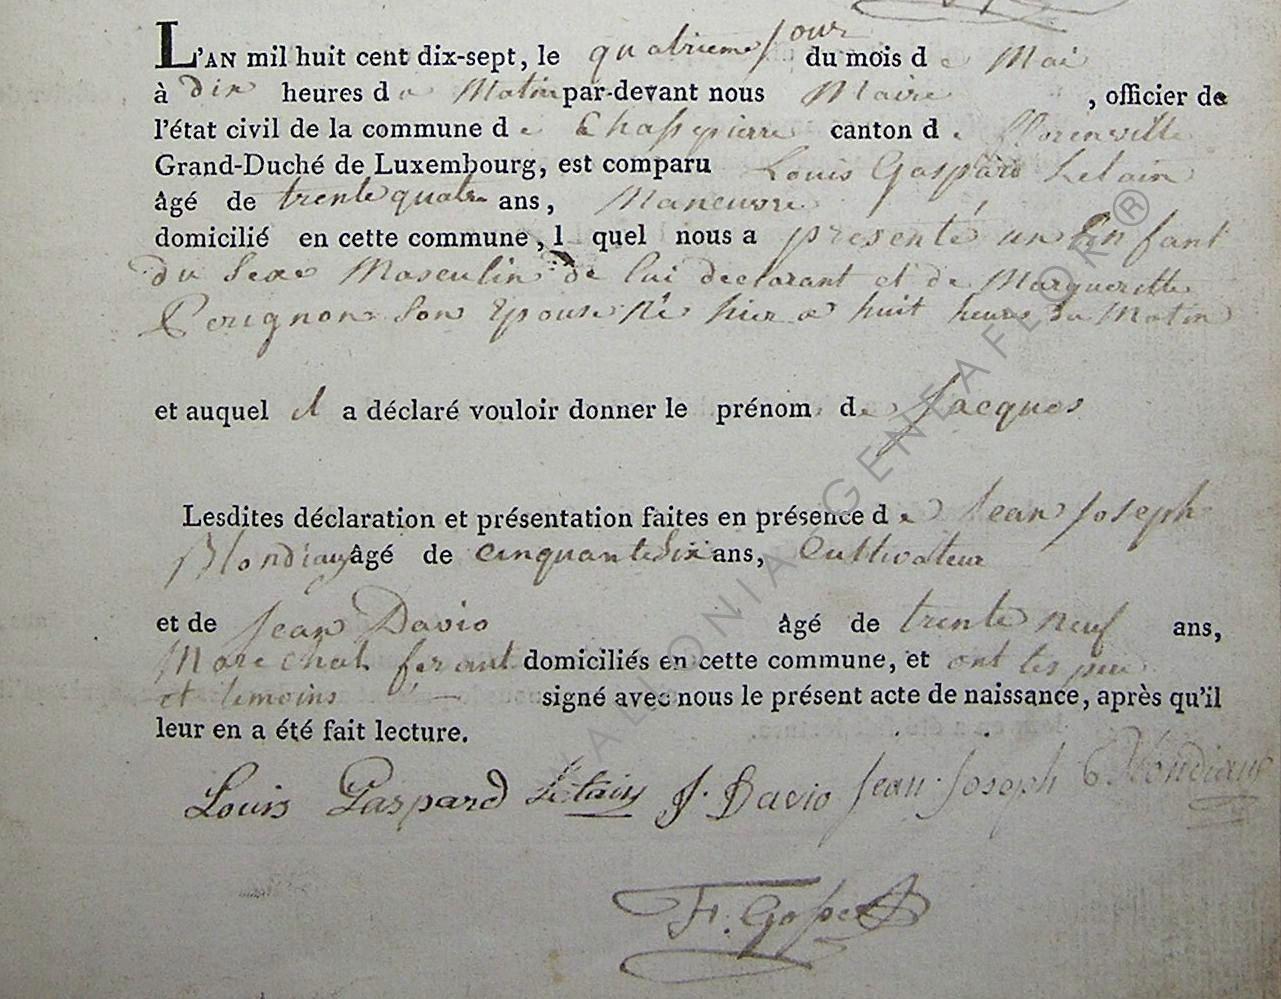 L'AN mil huit cent dix-sept, le quatrieme jour du mois de Mai
à dix heures du Matin par-devant nous Maire , officier de
l'état civil de la commune de Chassepierre canton de florenville
Grand-Duché de Luxembourg, est comparu Louis Gaspard Letain
âgé de trente quatre ans, Maneuvre
domicilié en cette commune, l quel nous a présenté un Enfant
du Sexe Masculin de lui declarant et de Margueritte
Perignon Son Epouse Né hier a huit heures du Matin
et auquel il a déclaré vouloir donner le prénom de Jacques
Lesdites déclaration et présentation faites en présence de Jean Joseph
Blondiaux âgé de cinquante Six ans, Cultivateur
et de Jean Davio âgé de trente neuf ans,
Marechal ferant domiciliés en cette commune, et ont les
et temoins signé avec nous le présent acte de naissance, après qu'il
leur en a été fait lecture.
Louis Gaspard Letain J. Davio Jean Joseph Blondiaux
WALLONIA GENEAFLOR ®